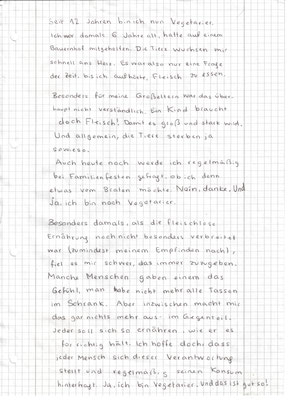 Seit 12 Jahren bin ich nun Vegetarier.
Ich war damals 6 Jahre alt, hatte auf einem
Bauernhof mitgeholfen. Die Tiere wuchsen mir
schnell ans Herz. Es war also nur eine Frage
der Zeit, bis ich aufhörte, Fleisch zu essen.
Besonders für meine Großeltern war das über-
haupt nicht verständlich. Ein Kind braucht
doch Fleisch! Damit es groß und stark wird.
Und allgemein, die Tiere sterben ja
sowieso.
Auch heute noch werde ich regelmäßig
bei Familienfesten gefragt, ob ich denn
etwas vom Braten möchte. Nein, danke. Und
ja, ich bin noch Vegetarier.
Besonders damals, als die fleischlose
Ernährung noch nicht besonders verbreitet
war (zumindest meinem Empfinden nach),
fiel es mir schwer, das immer zuzugeben.
Manche Menschen gaben einem das
Gefühl, man habe nicht mehr alle Tassen
im Schrank. Aber inzwischen macht mir
das gar nichts mehr aus. Im Gegenteil,
jeder soll sich so ernähren, wie er es
für richtig hält. Ich hoffe doch, dass
jeder Mensch sich dieser Verantwortung
stellt und regelmäßig seinen Konsum
hinterfragt. Ja, ich bin Vegetarier, und das ist gut so!